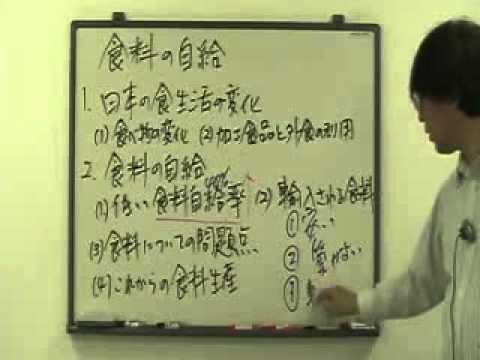 食料の自給
1. 日本の食生活の変化
(1) 食べ物の変化 (2) 加工食品と外食の利用
2. 食料の自給
(1) 低い食料自給率 (2) 輸入される食料
① 安い
(3) 食料についての問題点
② 質がよい
(4) これからの食料生産
③